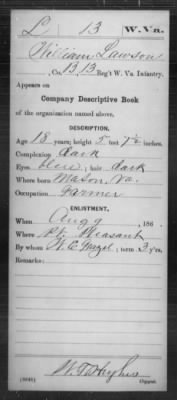 L 13 W. Va.
William Lawson
, Co. B 13 Reg't W. Va. Infantry.
Appears on
Company Descriptive Book
of the organization named above.
DESCRIPTION.
Age 18 years; height 5 feet 7½ inches.
Complexion dark
Eyes blue; hair dark
Where born Mason, Va.
Occupation Farmer
ENLISTMENT.
When Aug 9, 186 .
Where Pt. Pleasant
By whom W. C. ; term 3 y'rs.
Remarks:
W. T. Hughes
Copyist.